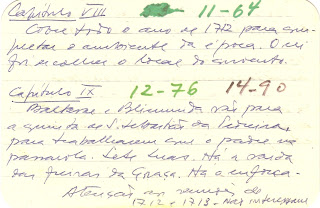 Capítulo VIII 11-64
Cobre todo o ano de 1712 para
o ambiente da época. O rei
foi escolher o local do convento.
Capítulo IX 12-76 14-90
Baltasar e Blimunda vão para
a quinta de S. Sebastião da Pedreira,
para trabalharem com o padre na
passarola. Sete Luas. Há a saída
das freiras da Graça. Há a
Atenção
1712 e 1713 - Não interessam